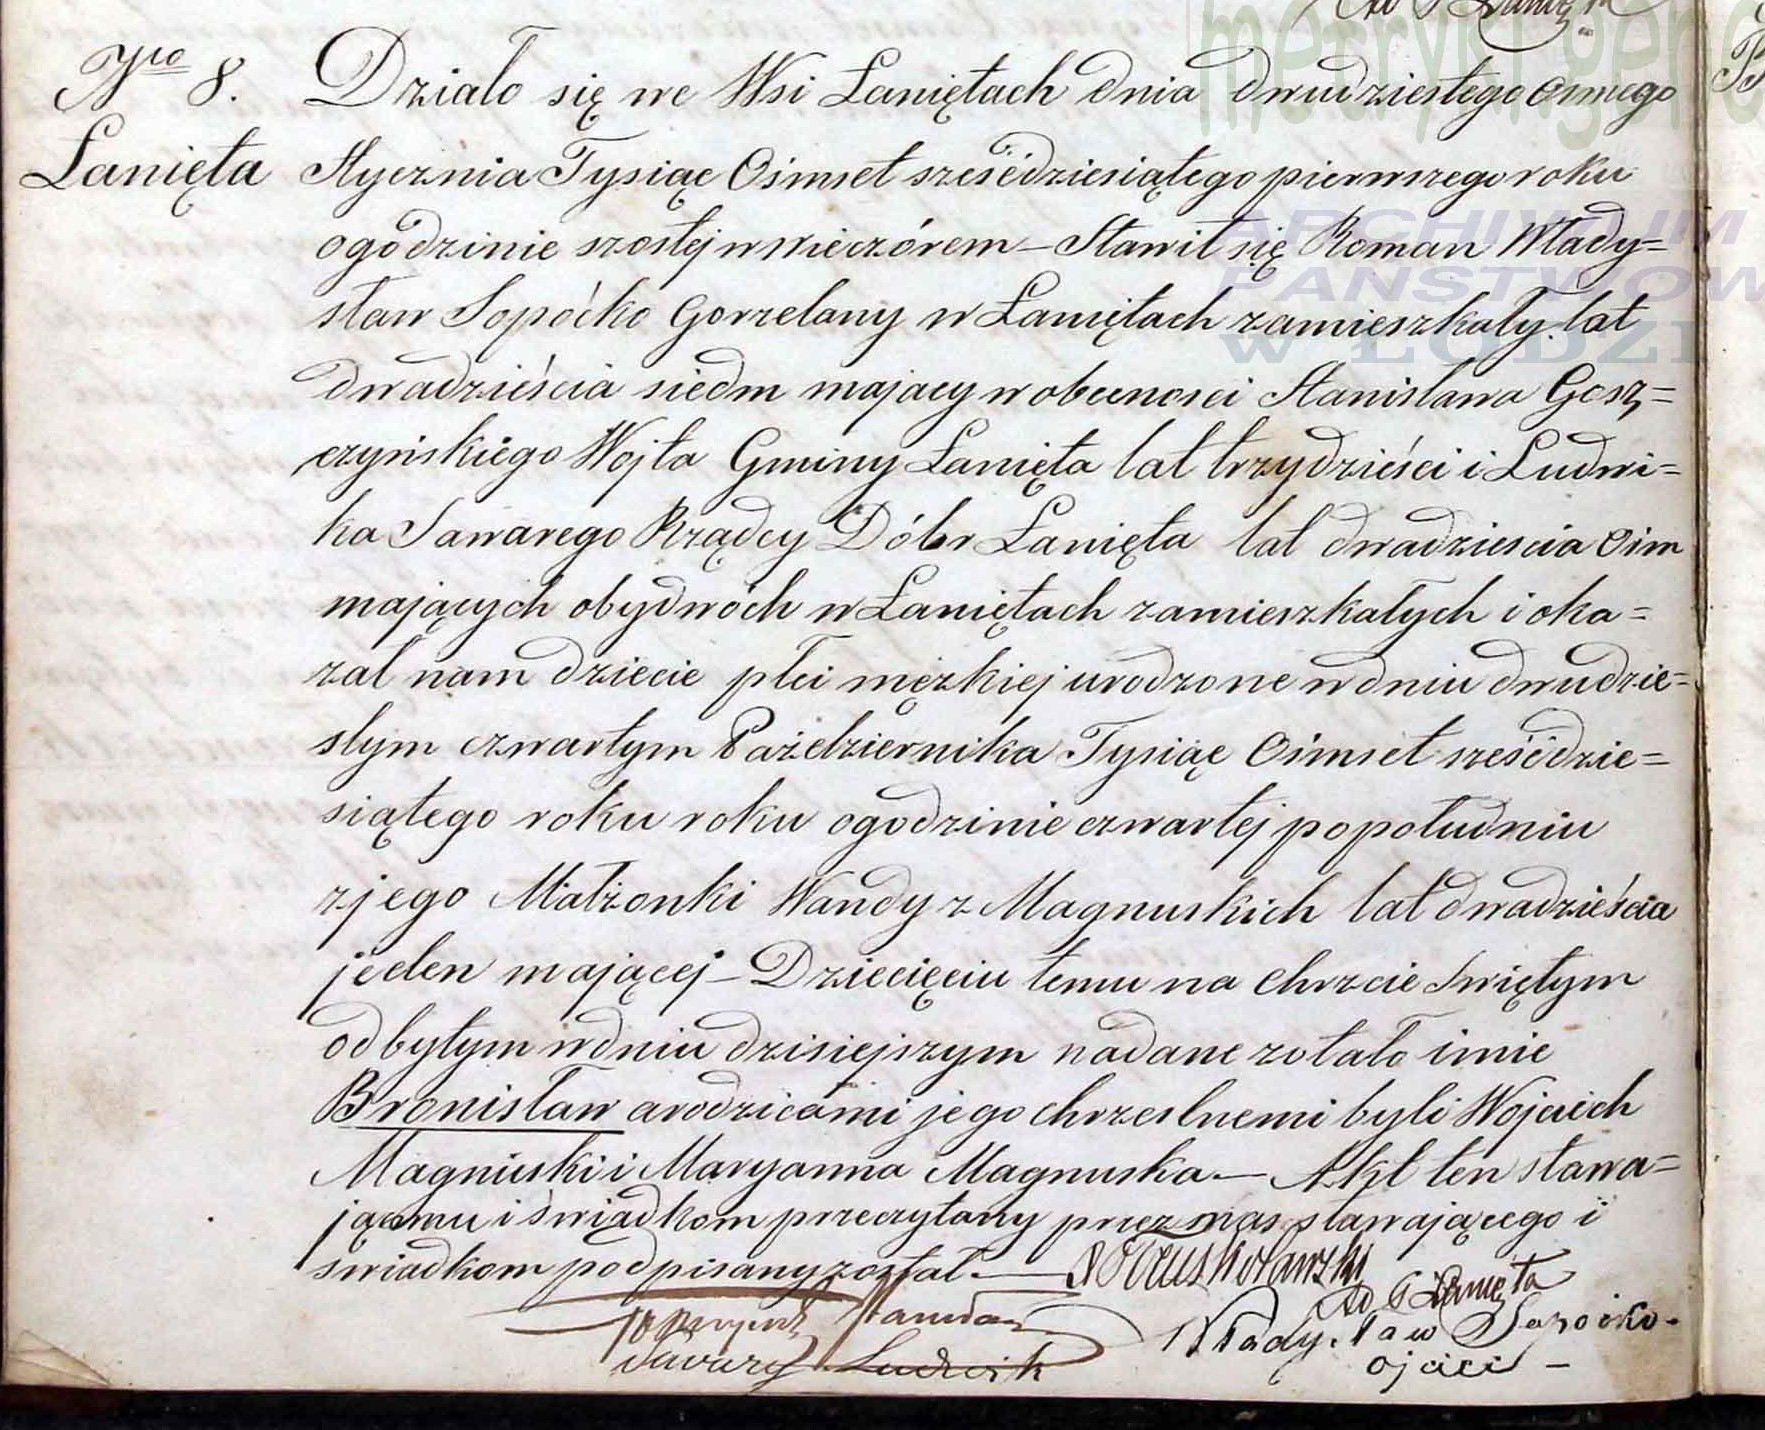 Nro 8.
Łanięta
Działo się we Wsi Łaniętach dnia dwudziestego osmego
Stycznia Tysiąc Ośmset sześćdziesiątego pierwszego roku
ogodzinie szostej wwieczórem – Stawił się Roman Włady=
sław Sopoćko Gorzelany w Łaniętach zamieszkały. lat
dwadzieścia siedm mający w obecnosci Stanisława Gosz=
czyńskiego Wojta Gminy Łanięta lat trzydzieści i Ludwi=
ka Sawarego Rządcy Dóbr Łanięta lat dwadziescia osm
mających obydwóch w Łaniętach zamieszkałych i oka=
zał nam dziecie płci męzkiej urodzone w dniu dwudzie=
stym czwartym Października Tysiąc Ośmset sześćdzie=
siątego roku roku ogodzinie czwartej popołudniu
zjego Małżonki Wandy z Magnuskich lat dwadzieścia
jeden mającej – Dziecięciu temu na Chrzcie Swiętym
odbytym wdniu dzisiejszym nadane zotało imie
Bronisław arodzicami jego chrzestnemi byli Wojciech
Magnuski i Maryanna Magnuska – Akt ten stawa=
jącemu i świadkom przeczytany przez nas stawającego i
swiadkom podpisany został. –
Ad P Łanięta
Władysław Sopoćko
ojciec –
Ludwik
metryki.gene
ARCHIWUM
PAŃSTWOW
W ŁODZI